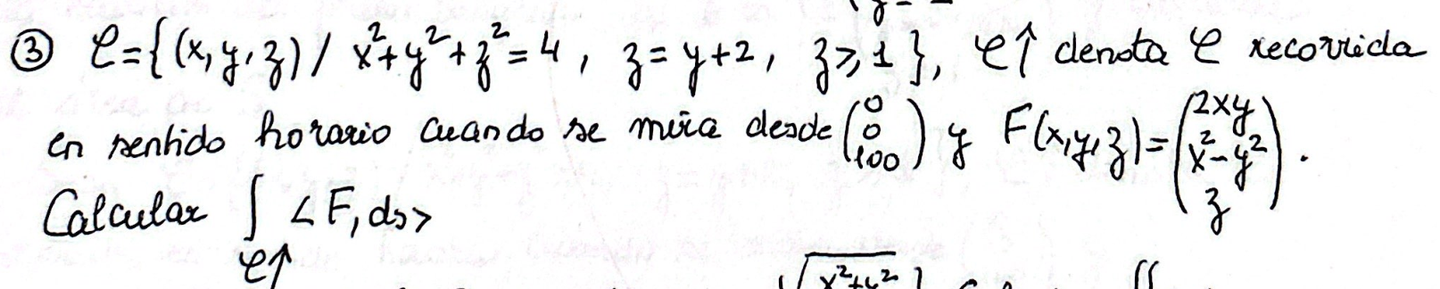 ③ C={(x,y,z) / x²+y²+z²=4, z=y+2, z≥1}, C↑ denota C recorrida
en sentido horario cuando se mira desde (0 0 100) y F(x,y,z)=(2xy x²-y² z).
Calcular ∫ <F,ds>
C↑
√x²+y²